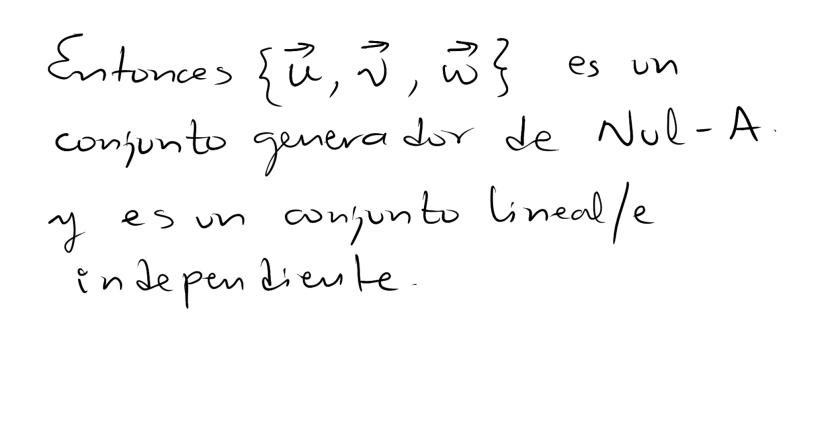 Entonces {u⃗, v⃗, w⃗} es un
conjunto generador de Nul-A.
y es un conjunto lineal/e
independiente.